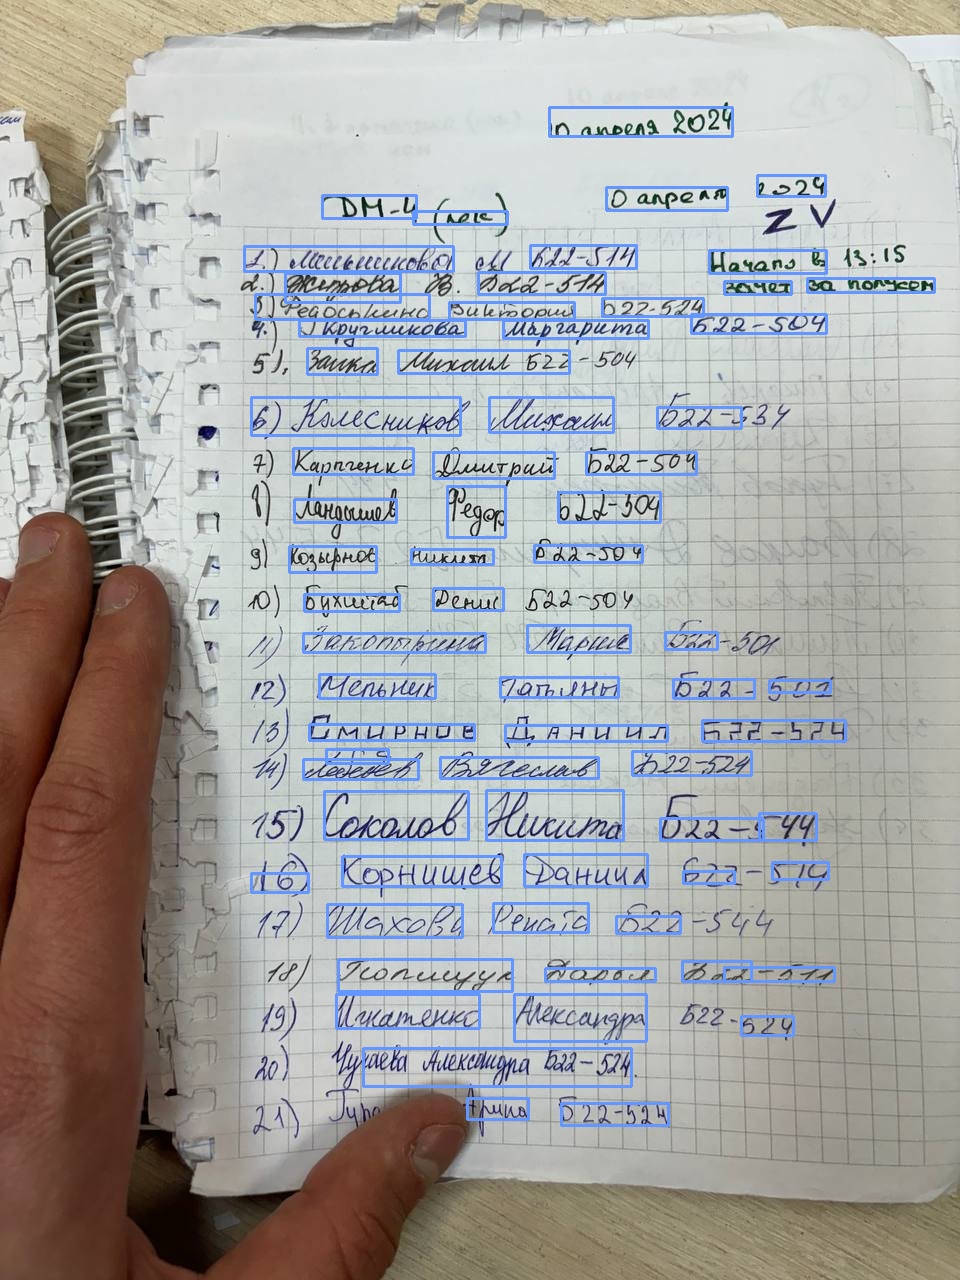 10 апреля 2024
DM-4 (лек) 10 апреля 2024
Z V
Начало в 13:15
зачет за полусем
1.) Мельникова М Б22-514
2.) Жетрова В. Б22-514
3.) Федоськино Виктория Б22-524
4.) Кругликова Маргарита Б22-504
5). Заика Михаил Б22-504
6) Колесников Михаил Б22-534
7) Карпченко Дмитрий Б22-504
8) Ландышев Федор Б22-504
9) Козырнов Никита Б22-504
10) Бухштаб Денис Б22-504
11) Закопырина Мария Б22-501
12) Мельник Татьяны Б22-501
13) Смирнов Даниил Б22-524
14) Вячеслав Б22-524
15) Соколов Никита Б22-544
16) Корнишев Даниил Б22-514
17) Шахова Рената Б22-544
18) Полищук Дарья Б22-511
19) Игнатенко Александра Б22-524
20) Чугаева Александра Б22-524.
21) Арина Б22-524